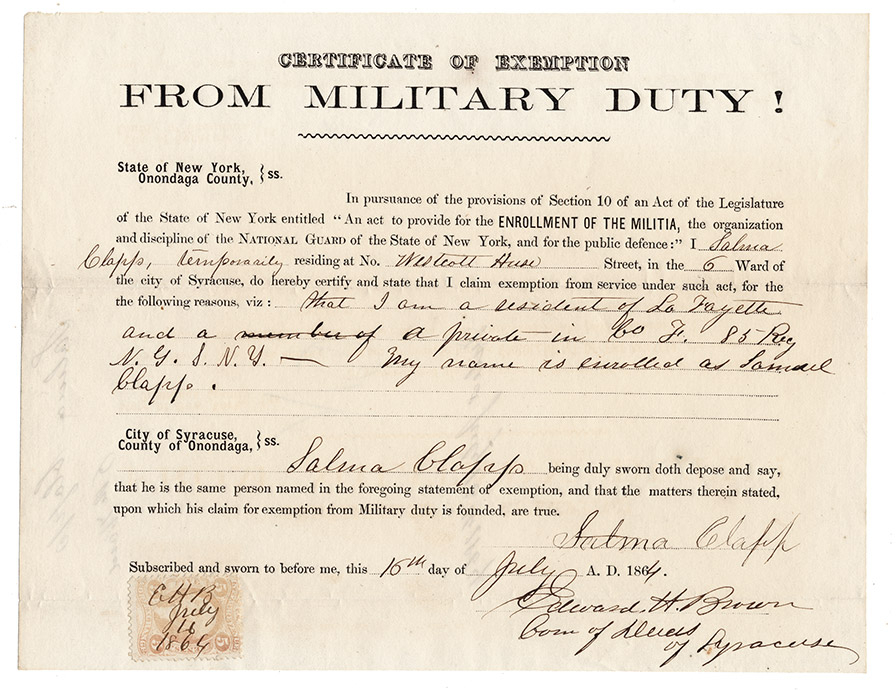 CERTIFICATE OF EXEMPTION
FROM MILITARY DUTY !
State of New York,
Onondaga County, } ss.
In pursuance of the provisions of Section 10 of an Act of the Legislature
of the State of New York entitled “An act to provide for the ENROLLMENT OF THE MILITIA, the organization
and discipline of the NATIONAL GUARD of the State of New York, and for the public defence:” I Salma
Clapp, temporarily residing at No. Westcott Huse Street, in the 6 Ward of
the city of Syracuse, do hereby certify and state that I claim exemption from service under such act, for the
the following reasons, viz : that I am a resident of La Fayette
and a member of a private in Co F. 85 Reg
N. G. S. N. Y. — My name is enrolled as Samuel
Clapp.
City of Syracuse,
County of Onondaga, } ss.
Salma Clapp being duly sworn doth depose and say,
that he is the same person named in the foregoing statement of exemption, and that the matters therein stated,
upon which his claim for exemption from Military duty is founded, are true.
Salma Clapp
Subscribed and sworn to before me, this 16th day of July A. D. 1864.
Edward H. Brown
Com of Deeds
of Syracuse
E H B
July
16
1864
5